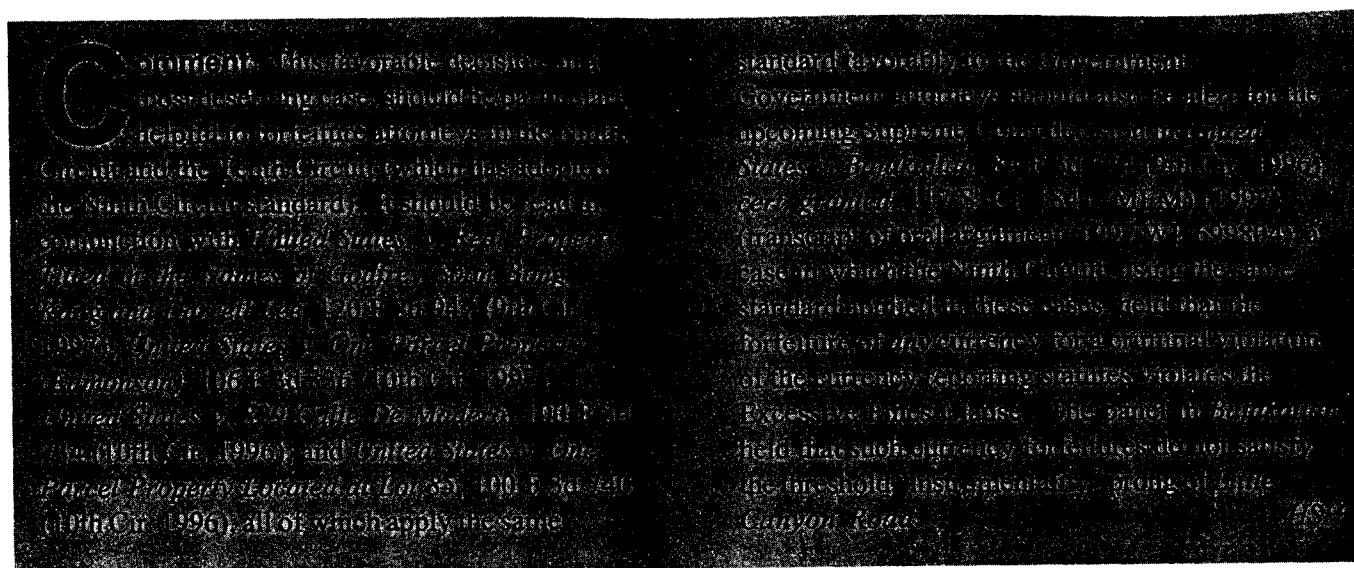 Comment: This favorable decision on a
case, should be particularly
helpful to forfeiture attorneys in the Ninth
Circuit and the Tenth Circuit (which has adopted
the Ninth Circuit standard). It should be read in
conjunction with United States v. Real Property
Titled in the Names of Godfrey Soon Bong
Kang and Darrell Lee, 120 F.3d 947 (9th Cir.
1997); United States v. One Parcel Property
106 F.3d 336 (10th Cir. 1997);
United States v. 829 Calle De Madero, 100 F.3d
(10th Cir. 1996); and United States v. One
Parcel Property Located at Lot 85, 100 F.3d 740
(10th Cir. 1996), all of which apply the same
standard favorably to the Government.
Government attorneys should also be alert for the
upcoming Supreme Court decision in United
States v. Bajakajian, 84 F.3d 334 (9th Cir. 1996),
cert. granted, 117 S. Ct. (1997)
(transcript of oral argument, 1997 WL a
case in which the Ninth Circuit, using the same
standard applied in these cases, held that the
forfeiture of any currency for a criminal violation
of the currency reporting statutes violates the
Excessive Fines Clause. The panel in Bajakajian
held that such currency forfeitures do not satisfy
the threshold "instrumentality" prong of
Canyon Road.